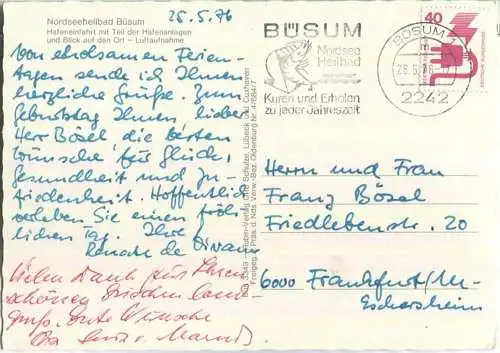 Nordseeheilbad Büsum
Hafeneinfahrt mit Teil der Hafenanlagen
und Blick auf den Ort – Luftaufnahme
25.5.76
Von erholsamen Ferien-
tagen sende ich Ihnen
herzliche Grüße. Zum
Geburtstag Ihnen, lieber
Herr Bösel die besten
Wünsche für Glück,
Gesundheit und Zu-
friedenheit. Hoffentlich
verleben Sie einen fröh-
lichen Tag. Ihre
Renate de
Vielen Dank für Ihren
schönen
gruß. Gute Wünsche
Ihre
Schöning & Co
Lübeck und Cuxhaven
Freigeg. Präs. d. Nds. Verw.-Bez. Oldenburg Nr.
BÜSUM
Nordsee
Heilbad
Kuren und Erholen
zu jeder Jahreszeit
BÜSUM
26.5.76
2242
40
DEUTSCHE BUNDESPOST
Herrn und Frau
Franz Bösel
Friedlebenstr. 20
6000 Frankfurt/M-
Eschersheim